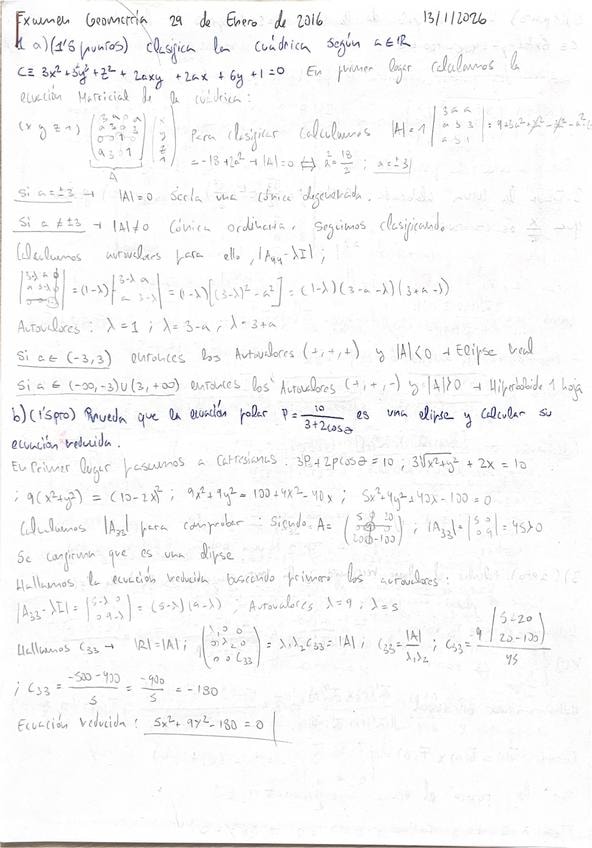 Examen Geometría 29 de Enero de 2016 13/1/2026
1 a) (1'5 puntos) clasifica la cuádrica según a∈ℝ
C≡ 3x²+3y²+z²+2axy+2ax+6y+1=0 En primer lugar calculamos la
ecuación Matricial de la cuádrica:
(x y z 1) Para clasificar calculamos |A|=1
A
=-18+2a² → |A|=0 ⟺ a²=18/2 ; a=±3
Si a=±3 → |A|=0 Sería una cónica degenerada.
Si a≠±3 → |A|≠0 Cónica ordinaria. Seguimos clasificando
Calculamos autovalores para ello, |A₄₄-λI|;
=(1-λ)|3-λ a a 3-λ|=(1-λ)[(3-λ)²-a²]=(1-λ)(3-a-λ)(3+a-λ)
Autovalores: λ=1 ; λ=3-a ; λ=3+a
Si a∈(-3,3) entonces los Autovalores (+,+,+) y |A|<0 → Elipse real
Si a∈(-∞,-3)∪(3,+∞) entonces los Autovalores (+,+,-) y |A|>0 → Hiperboloide 1 hoja
b) (1'5pto) Prueba que la ecuación polar P=10/(3+2cosθ) es una elipse y calcular su
ecuación reducida.
En Primer lugar pasamos a cartesianas. 3P+2Pcosθ=10 ; 3√(x²+y²)+2x=10
; 9(x²+y²)=(10-2x)² ; 9x²+9y²=100+4x²-40x ; 5x²+9y²+40x-100=0
Calculamos |A₃₃| para comprobar: Siendo A=(5 0 20 0 9 0 20 0 -100) ; |A₃₃|=|5 0 0 9|=45>0
Se confirma que es una elipse
Hallamos la ecuación reducida buscando primero los autovalores:
|A₃₃-λI|=|5-λ 0 0 9-λ|=(5-λ)(9-λ) ; Autovalores λ=9 ; λ=5
Hallamos C₃₃ → |R|=|A| ; |λ₁ 0 0 0 λ₂ 0 0 0 C₃₃|=λ₁λ₂C₃₃=|A| ; C₃₃=|A|/λ₁λ₂ ; C₃₃=9|5 20 20 -100|/45
; C₃₃=(-500-400)/5=-900/5=-180
Ecuación reducida: 5x²+9y²-180=0